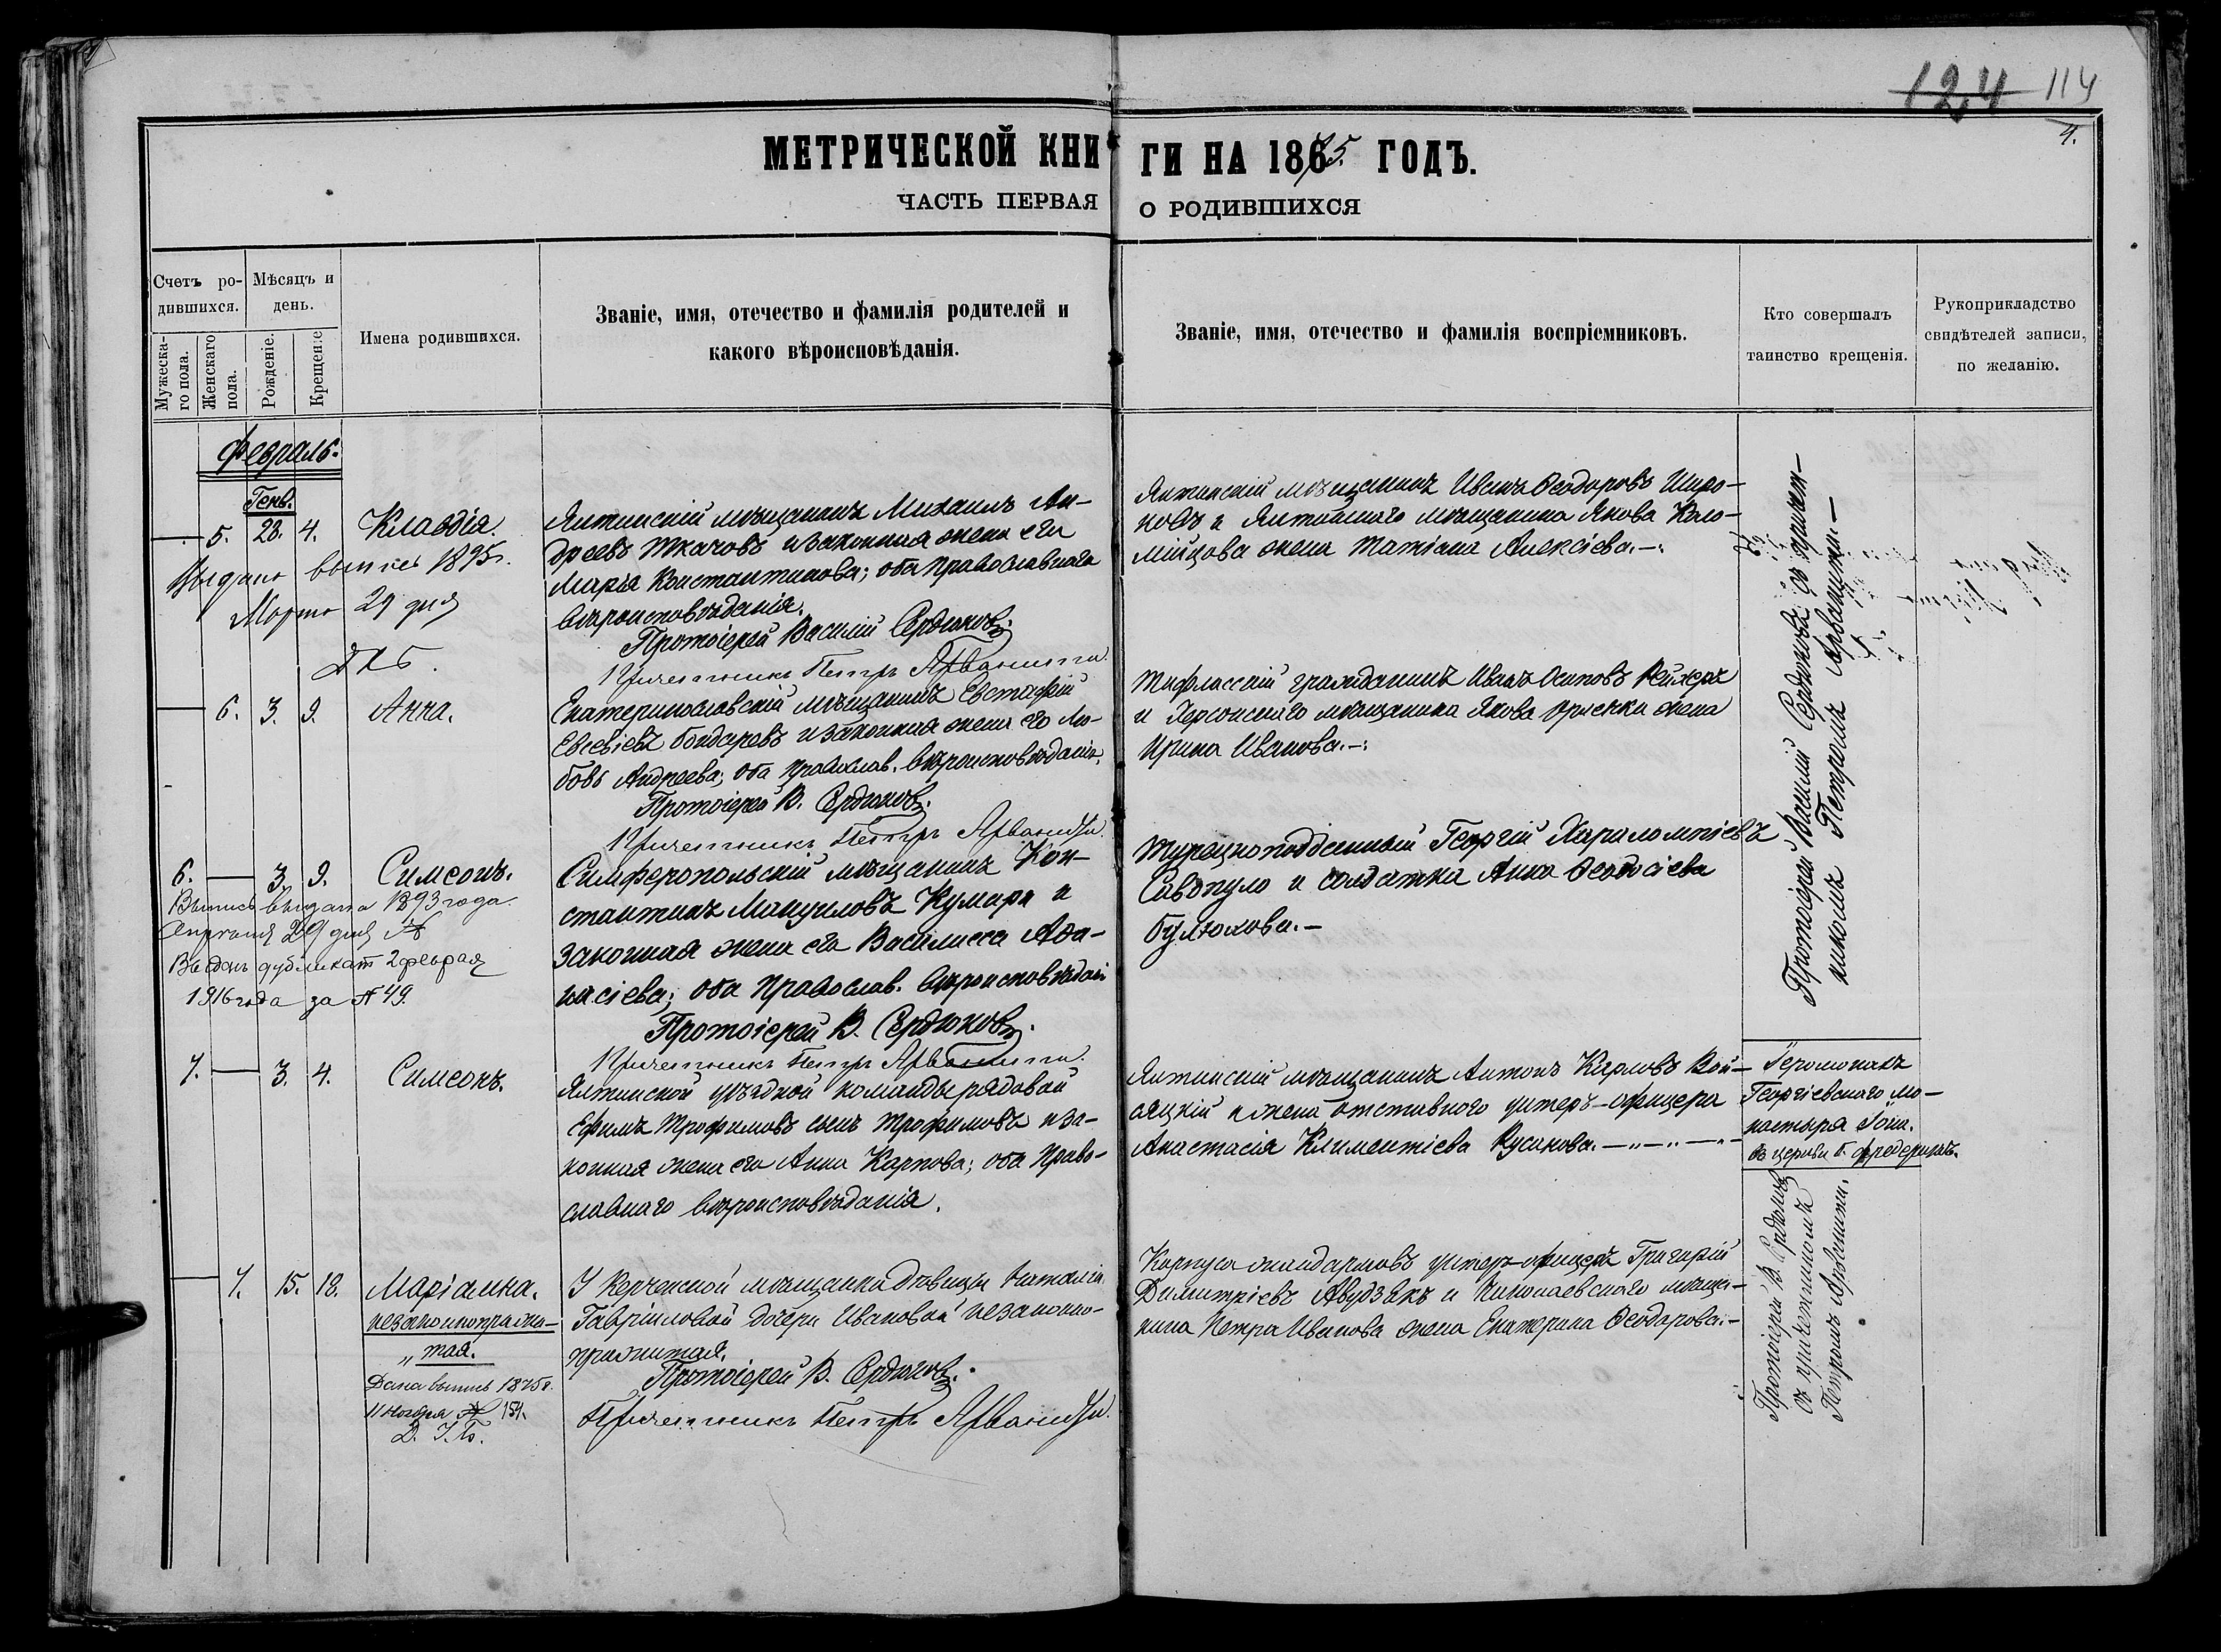 124 114
4.
МЕТРИЧЕСКОЙ КНИГИ НА 1875 ГОДЪ.
ЧАСТЬ ПЕРВАЯ О РОДИВШИХСЯ
Счетъ ро-
дившихся.
Мужеска-
го пола.
Женскаго
пола.
Мѣсяцъ и
день.
Рожденіе.
Крещеніе
Имена родившихся.
Званіе, имя, отечество и фамилія родителей и
какого вѣроисповѣданія.
Званіе, имя, отечество и фамилія воспріемниковъ.
Кто совершалъ
таинство крещенія.
Рукоприкладство
свидѣтелей записи,
по желанію.
Февраль.
Генв.
— 5. 28. 4. Клавдія.
Выдано выпись 1895 г.
Марта 29 дня
Ялтинскій мѣщанинъ Михаилъ Ан-
дреевъ Ткачовъ и законная жена его
Марія Константинова; оба православнаго
вѣроисповѣданія.
Протоіерей Василій Сердюковъ.
Причетникъ Петръ Арванити.
Ялтинскій мѣщанинъ Иванъ Ѳеодоровъ Широ-
ковъ и Ялтинскаго мѣщанина Якова Коло-
мійцова жена Татіана Алексіева.—
Протоіерей Василій Сердюковъ съ причет-
никомъ Петромъ Арванити.—
— 6. 3. 9. Анна.
Екатеринославскій мѣщанинъ Евстафій
Евсевіевъ Бондаревъ и законная жена его Лю-
бовь Андреева; оба православ. вѣроисповѣданія.
Протоіерей В. Сердюковъ.
Причетникъ Петръ Арванити.
Тифлисскій гражданинъ Иванъ Осиповъ Рейлеръ
и Херсонскаго мѣщанина Якова Орленки жена
Ирина Иванова.—
6. — 3. 9. Симеонъ.
Выпись выдана 1893 года
Апреля 29 дня №
Выданъ дубликат 2 февраля
1916 года за № 49.
Симферопольскій мѣщанинъ Кон-
стантинъ Мануиловъ Кумари и
законная жена его Василисса Аѳа-
насіева; оба православ. вѣроисповѣданія
Протоіерей В. Сердюковъ.
Причетникъ Петръ Арванити.
Турецкоподданный Георгій Харалампіевъ
Савопуло и солдатка Анна Ѳеодосіева
Булюкова.—
7. — 3. 4. Симеонъ.
Ялтинской уѣздной команды рядовой
Ефимъ Трофимовъ сынъ Трофимовъ и за-
конная жена его Анна Карпова; оба право-
славнаго вѣроисповѣданія.
Ялтинскій мѣщанинъ Антонъ Карловъ Вой-
сяцкій и жена отставного унтеръ-офицера
Анастасія Климентіева Русакова.—
Іеромонахъ
Георгіевскаго мо-
настыря Іона.
въ церкви б. Фредерикъ.
— 7. 15. 18. Маріамна.
незаконноприжи-
„тая.
Дана выпись 1875 г.
11 Ноября № 154.
У Керченской мѣщанки дѣвицы Наталіи
Гавріиловой дочери Ивановой незаконно-
прижитая.
Протоіерей В. Сердюковъ.
Причетникъ Петръ Арванити.
Корпуса жандармовъ унтеръ-офицеръ Григорій
Димитріевъ Авудзякъ и Николаевскаго мѣща-
нина Петра Иванова жена Екатерина Ѳеодорова.—
Протоіерей В. Сердюковъ
съ причетникомъ
Петромъ Арванити.